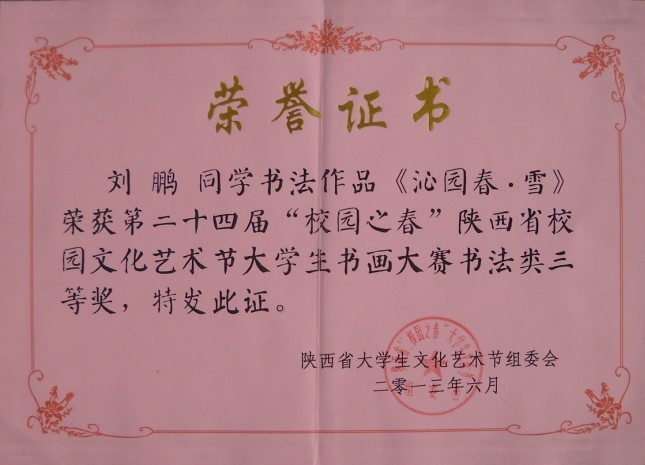 荣誉证书
刘 鹏 同学书法作品《沁园春·雪》
荣获第二十四届“校园之春”陕西省校
园文化艺术节大学生书画大赛书法类三
等奖，特发此证。
陕西省大学生文化艺术节组委会
二零一三年六月